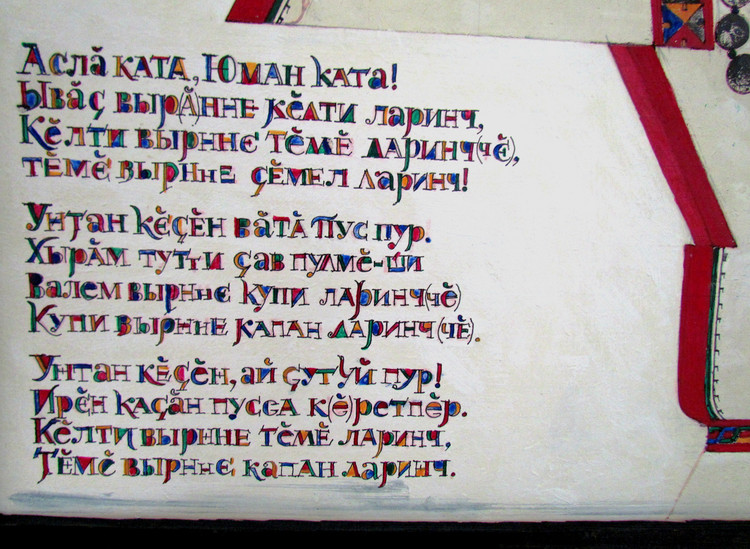 Аслӑ ката, Юман ката!
Ывӑҫ выр(ӑ)нне кӗлти ларинч,
Кӗлти вырнне тӗмӗ ларинч(чӗ),
тӗмӗ вырнне ҫӗмел ларинч!
Унтан кӗҫӗн вӑтӑ пус пур.
Хырӑм тутти ҫав пулмӗ-ши
Валем вырнне купи ларинч(чӗ)
Купи вырнне капан ларинч(чӗ).
Унтан кӗҫӗн, ай ҫут уй пур!
Ирӗн каҫӑн пусса к(ӗ)ретпӗр.
Кӗлти вырнне тӗмӗ ларинч,
Тӗмӗ вырнне капан ларинч.